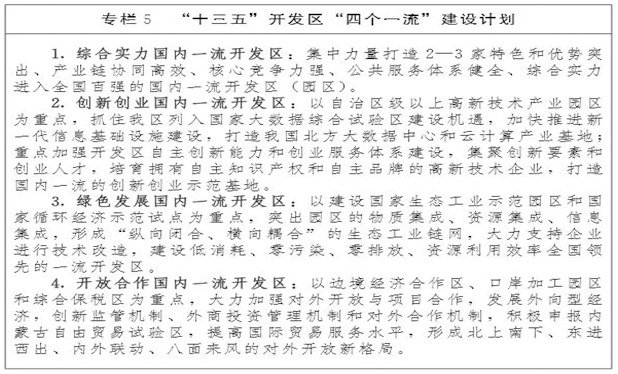 专栏 5 “十三五”开发区“四个一流”建设计划
1. 综合实力国内一流开发区：集中力量打造 2—3 家特色和优势突
出、产业链协同高效、核心竞争力强、公共服务体系健全、综合实力
进入全国百强的国内一流开发区（园区）。
2. 创新创业国内一流开发区：以自治区级以上高新技术产业园区
为重点，抓住我区列入国家大数据综合试验区建设机遇，加快推进新
一代信息基础设施建设，打造我国北方大数据中心和云计算产业基地；
重点加强开发区自主创新能力和创业服务体系建设，集聚创新要素和
创业人才，培育拥有自主知识产权和自主品牌的高新技术企业，打造
国内一流的创新创业示范基地。
3. 绿色发展国内一流开发区：以建设国家生态工业示范园区和国
家循环经济示范试点为重点，突出园区的物质集成、资源集成、信息
集成，形成“纵向闭合、横向耦合”的生态工业链网，大力支持企业
进行技术改造，建设低消耗、零污染、零排放、资源利用效率全国领
先的一流开发区。
4. 开放合作国内一流开发区：以边境经济合作区、口岸加工园区
和综合保税区为重点，大力加强对外开放与项目合作，发展外向型经
济，创新监管机制、外商投资管理机制和对外合作机制，积极申报内
蒙古自由贸易试验区，提高国际贸易服务水平，形成北上南下、东进
西出、内外联动、八面来风的对外开放新格局。